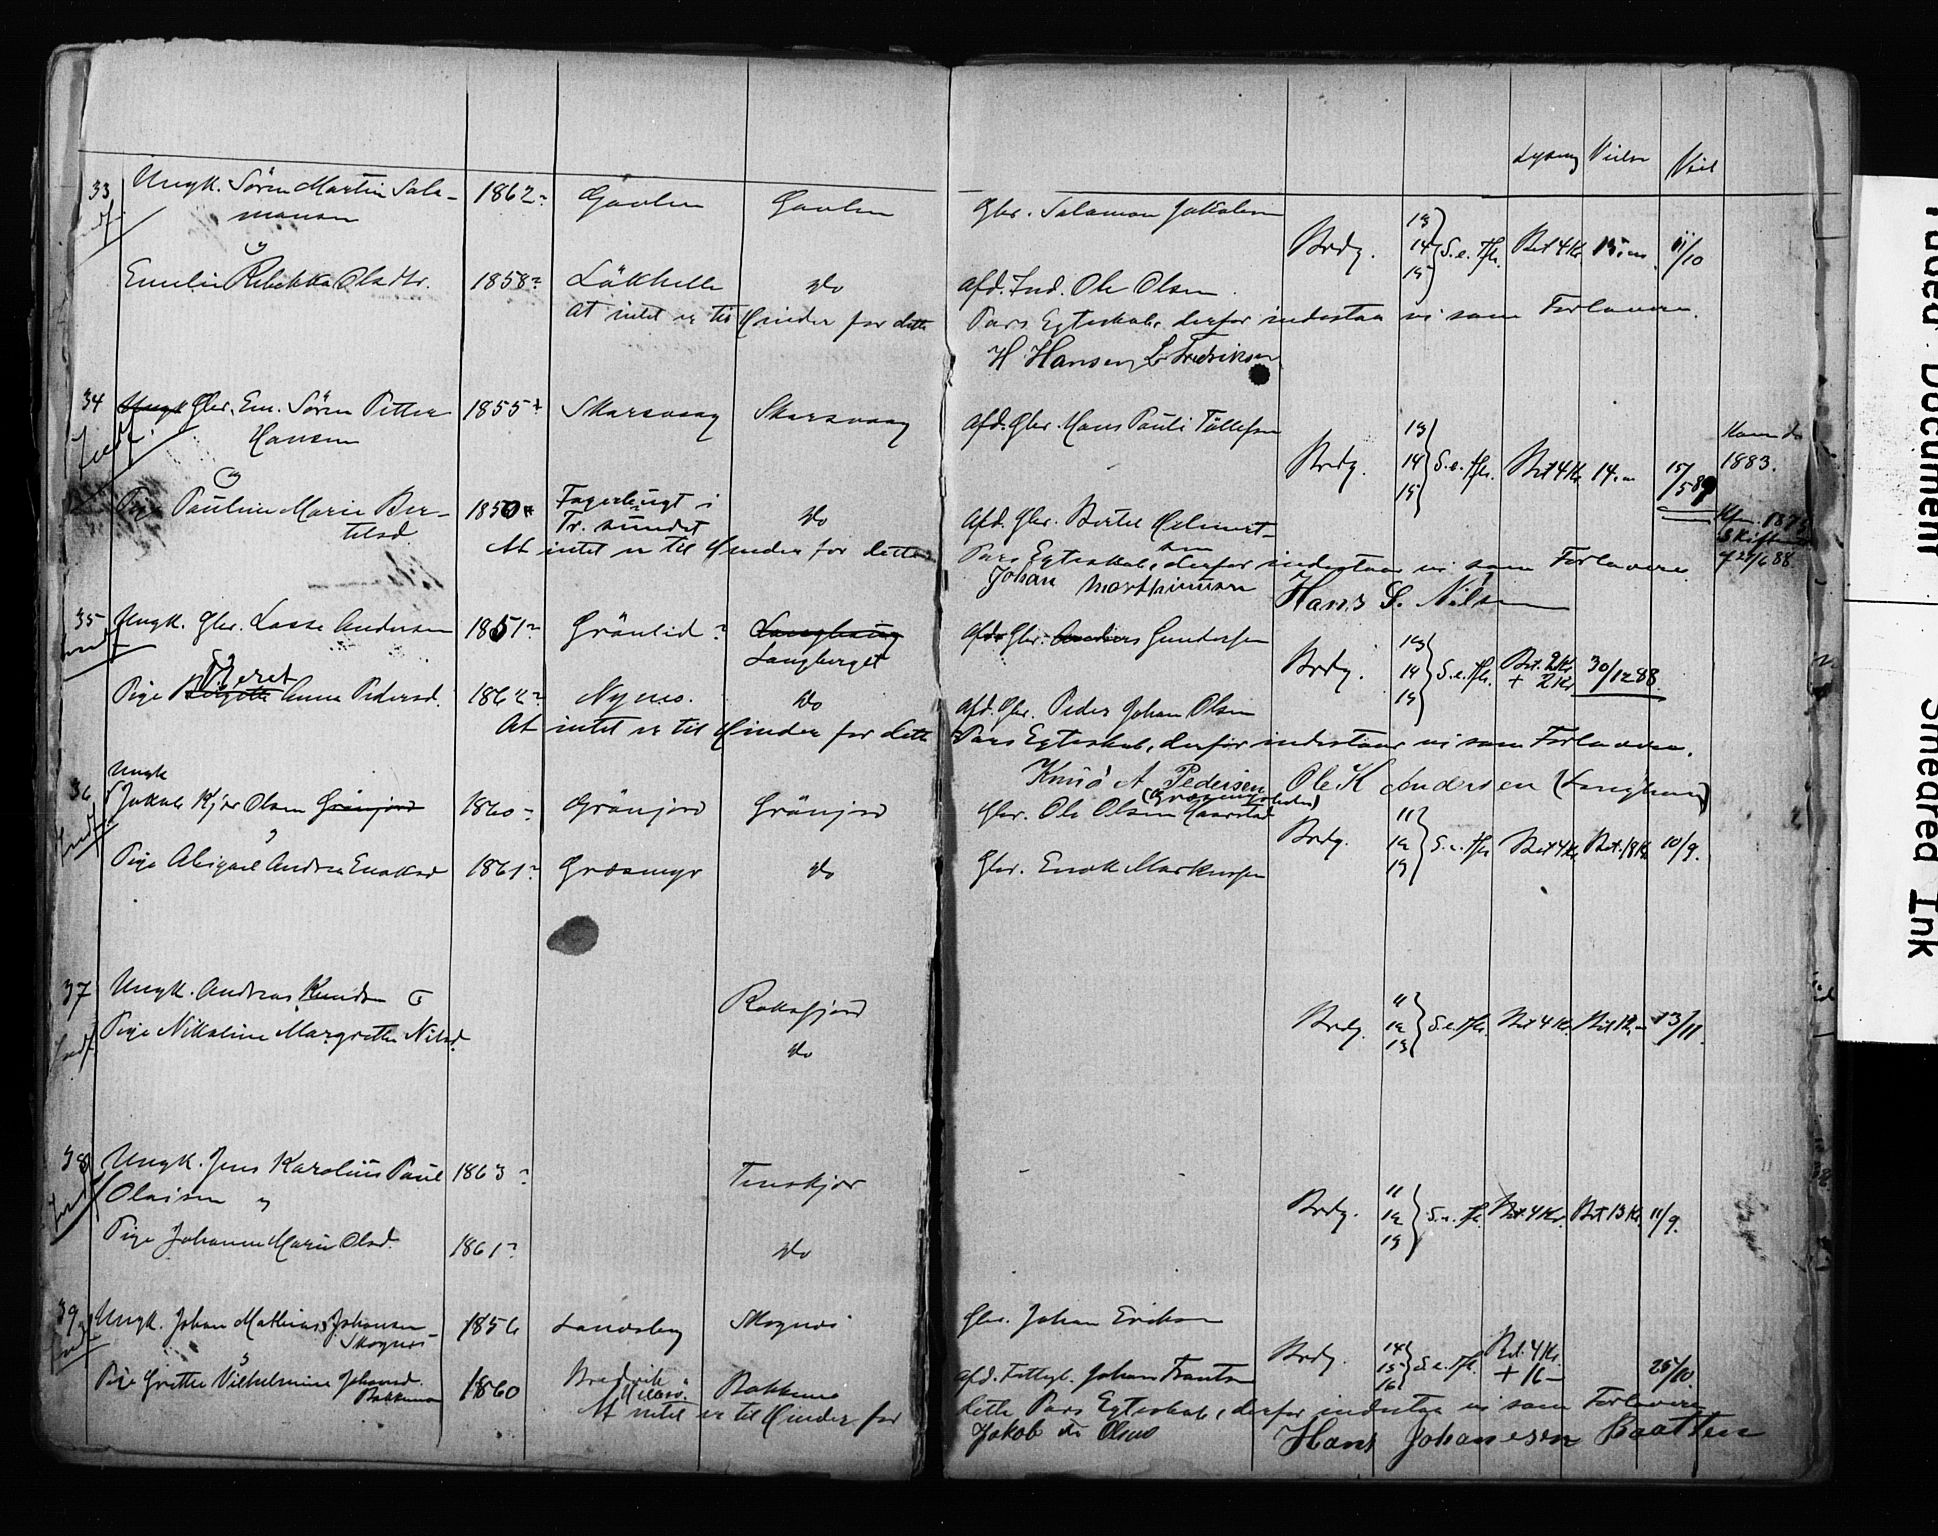 Lysning Vielse Viel
33 Ungk. Sören Martin Salo- 1862 Gavlen Gavlen Gbr. Salamon Jakobsen
monsen
Brdg. 13 14 15 S. e. Tfk. Bet 4 Kr. 11/10
Emelie Rebekka Olsdtr. 1858 Do afd. Ind. Ole Olsen
At intet er til Hinder for dette Pars Egteskab, derfor indestaa vi som Forlovere.
H. Hansen L. Fredriksen
34 Ungk Gbr. Em. Sören Petter 1855 Skarsvaag Skarsvaag Afd. Gbr. Hans Pauli Tollefsen
Hansen
Brdg. 13 14 15 S. e. Tfk. Bet 4 Kr. 15/5 89
1883.
Pige Pauline Marie Ber- 1850 Fagerbugt i Do Afd. Gbr. Bertel Helmert-
tilsd Tr. sundet sen
27/6 88.
At intet er til Hinder for dette Pars Egteskab, derfor indestaar vi som Forlovere.
Johan Morthinussen Hans S. Nilsen
35 Ungk. Gbr. Lasse Andersen 1851 Grönlid Langhaug Afd. Gbr. Anders Gundersen
Langberget
Brdg. 13 14 15 S. e. Tfk. Bet. 2 Kr + 2 Kr 30/12 88.
Beret
Pige Birgitte Anna Pedersd. 1862 Nymo. Do Afd. Gbr. Peder Johan Olsen
At intet er til Hinder for dette Pars Egteskab, derfor indestaar vi som Forlovere.
Knud A Pedersen Ole K Andersen (Langhaug)
Ungk
36 Jakob Kjer Olsen Grönjord 1860 Grönjord Grönjord Gbr. Ole Olsen Haarstad
Brdg. 11 12 13 S. e. Tfk. Bet 4 Kr. Bet. 18 Kr. 10/9.
Pige Abigael Andrea Enoksd 1861 Græsmyr Do Gbr. Enok Markussen
37 Ungk. Andreas Knudsen Rossfjord
Brdg. 11 12 13 S. e. Tfk. Bet 4 Kr. 13/11.
Pige Nikoline Margrethe Nilsd. Do
38 Ungk. Jens Karolius Paul 1863 Tennskjær
Olaisen
Brdg. 11 12 13 S. e. Tfk. Bet 4 Kr. Bet 13 Kr. 11/9.
Pige Johanna Marie Olsd. 1861 Do
39 Ungk. Johan Mathias Johansen 1856 Landsby Skognes Gbr. Johan Eriksen
Skognes
Brdg. 14 15 16 S. e. Tfk. Bet. 4 Kr. + 16 - 25/10.
Pige Grethe Vilhelmine Johansd. 1860 Bredvik Bakkemo afd. Fattigl. Johan Frantsen
Bakkemo
At intet er til Hinder for dette Pars Egteskab, derfor indestaa vi som Forlovere
Jakob Olsen Hans Johanesen Baatten
Faded Document
Smeared Ink